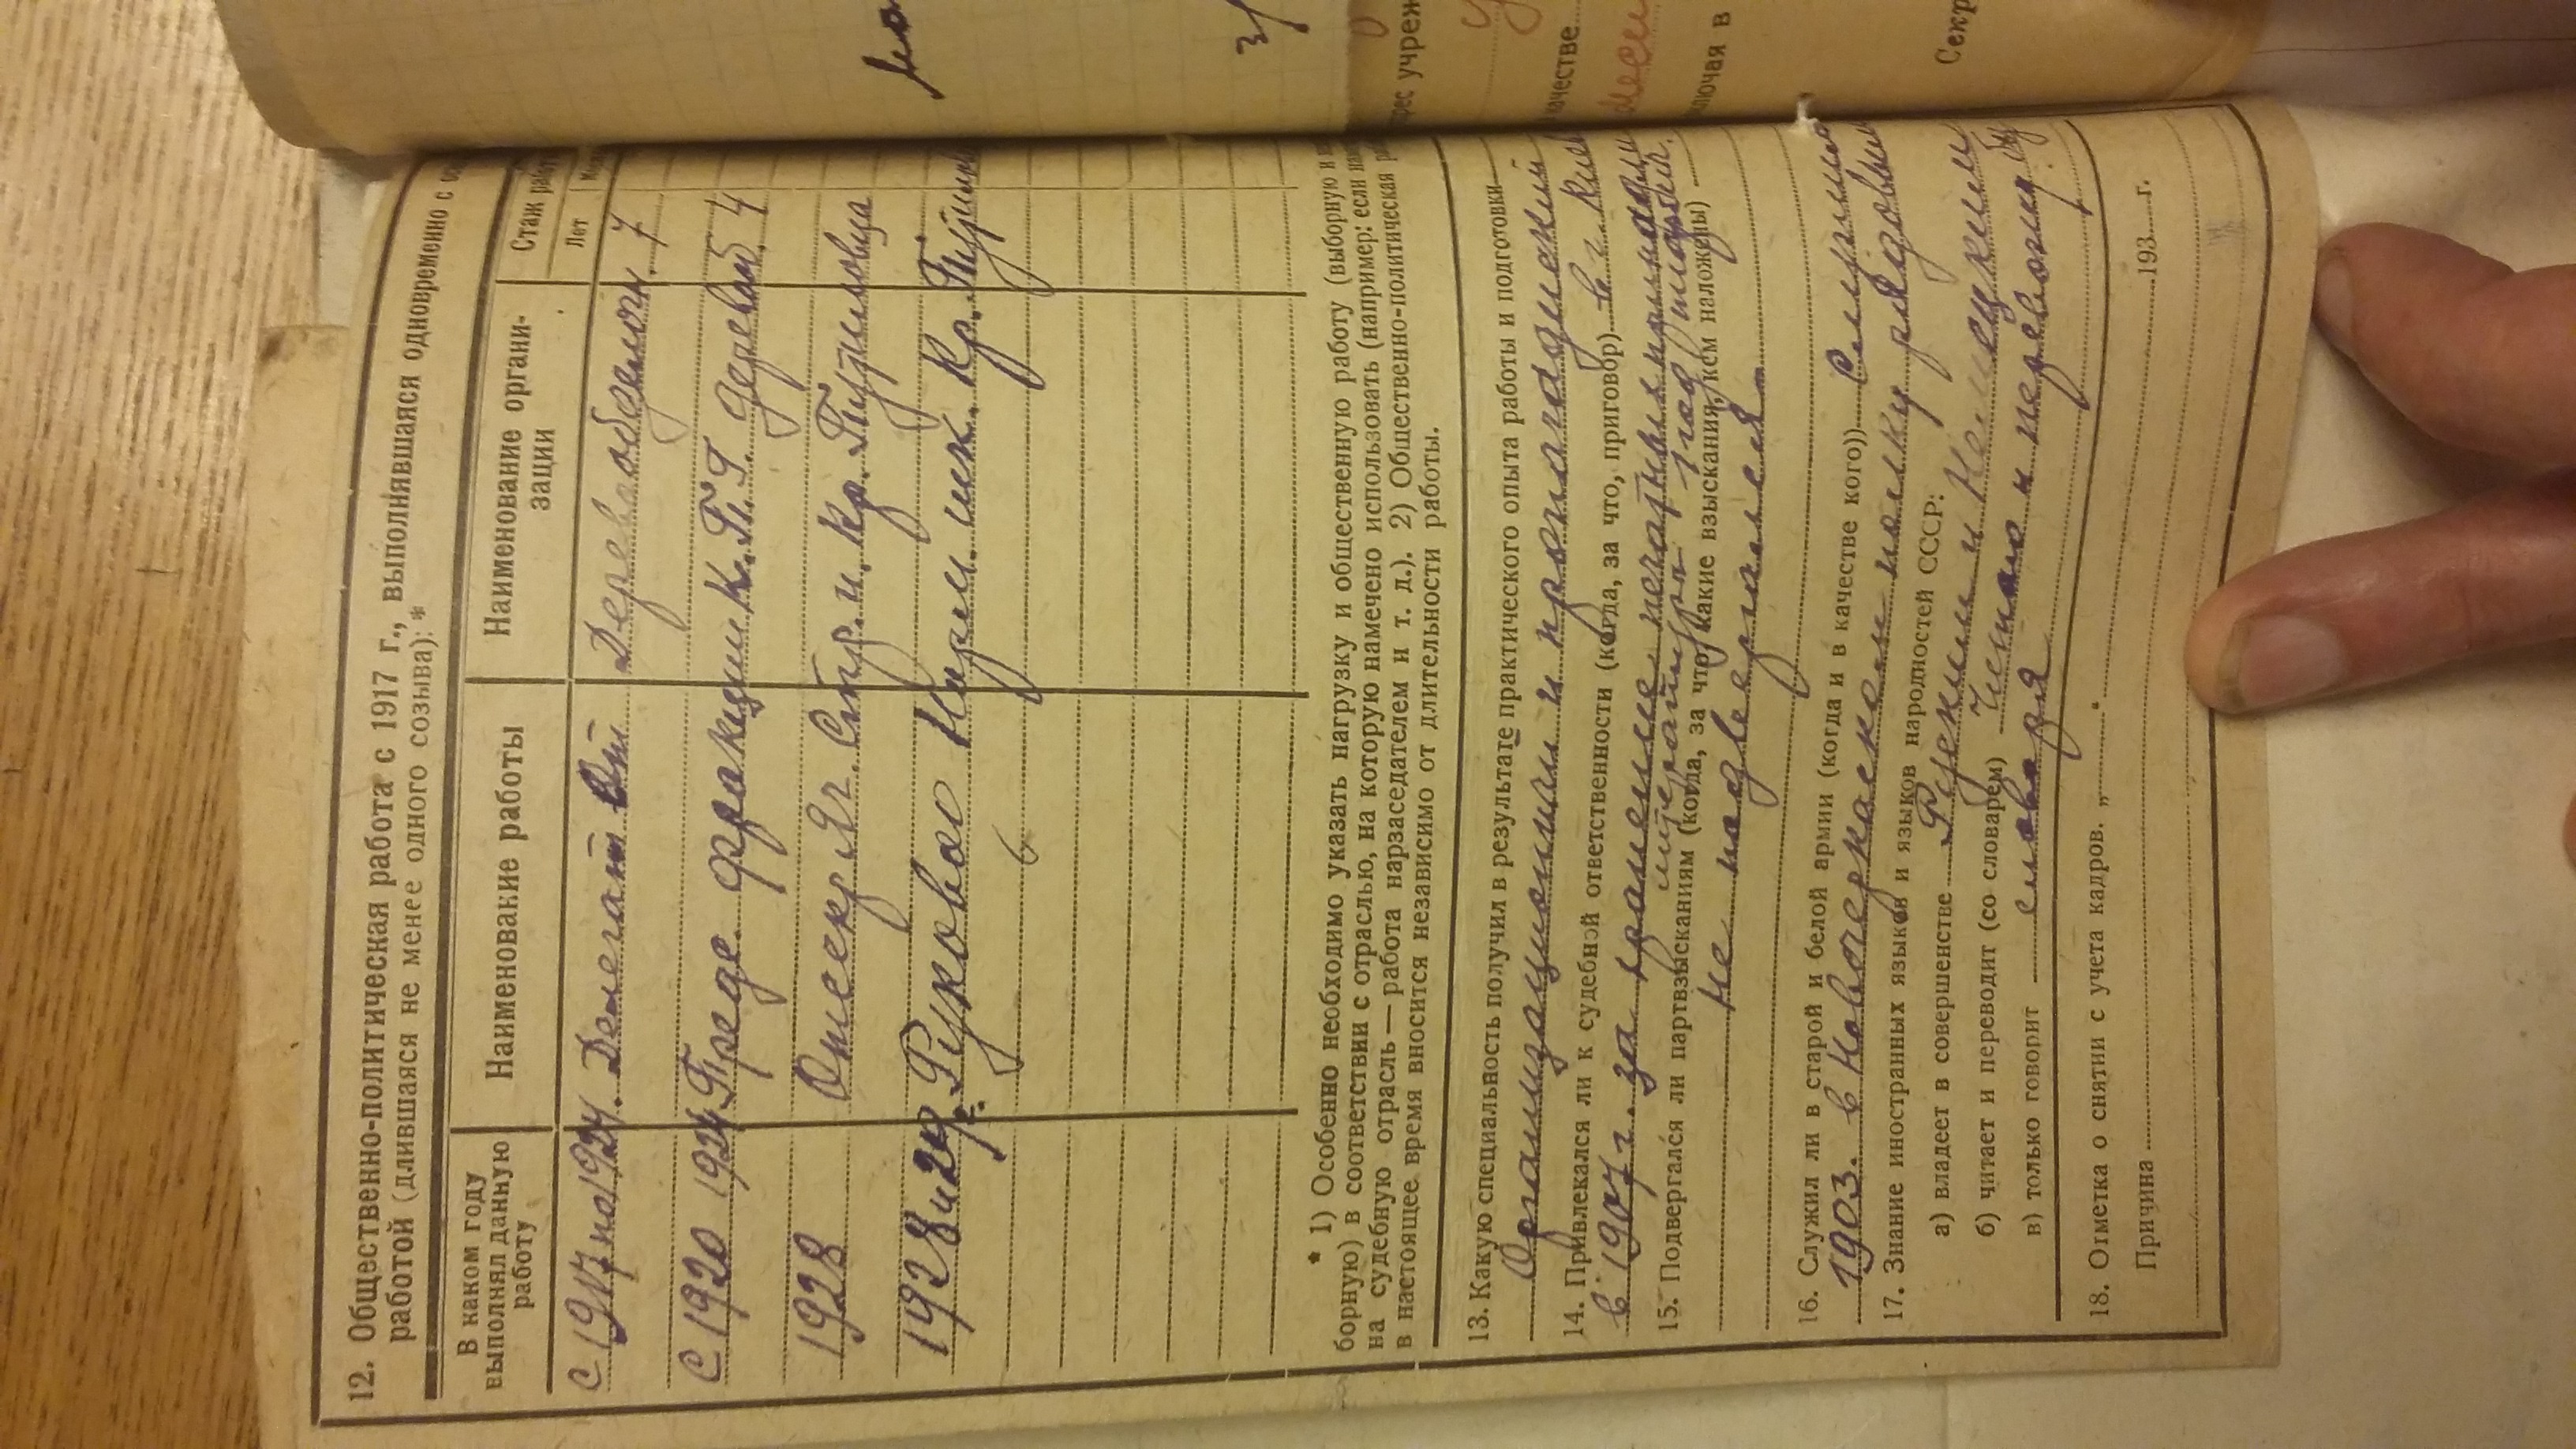 12. Общественно-политическая работа с 1917 г., выполнявшаяся одновременно с
работой (длившаяся не менее одного созыва): *
В каком году выполнял данную работу
Наименование работы
Наименование организации
Стаж работ
Лет
С 1917 по 1924. Делегат Деревообделочн. 7
С 1920 1924 Преде. Фракции К.П. деревооб. 4
1928 Отсекр Яч. Стр. и. кр.
1928 и 29 г. Руковово Кузн. шк. Кр.
* 1) Особенно необходимо указать нагрузку и общественную работу (выборную и
борную) в соответствии с отраслью, на которую намечено использовать (например: если
на судебную отрасль — работа нарзаседателем и т. д.). 2) Общественно-политическая
в настоящее время вносится независимо от длительности работы.
13. Какую специальность получил в результате практического опыта работы и подготовки
Организационный и пропагадиский
14. Привлекался ли к судебной ответственности (когда, за что, приговор) в г.
в 1907 г. за хранение
литературы год
15. Подвергался ли партвзысканиям (когда, за что, какие взыскания, кем наложены)
не подвергался
16. Служил ли в старой и белой армии (когда и в качестве кого)) Служил
1903. в Новочеркаском полку рядовым
17. Знание иностранных языков и языков народностей СССР:
а) владеет в совершенстве Руским и Немецким
б) читает и переводит (со словарем) Читаю и перевожу
в) только говорит словаря
18. Отметка о снятии с учета кадров. „ “ 193 г.
Причина
рес учреж
качестве
ключая в
Секр